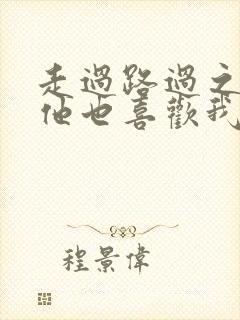 走過路過之
他也喜歡我
程景偉